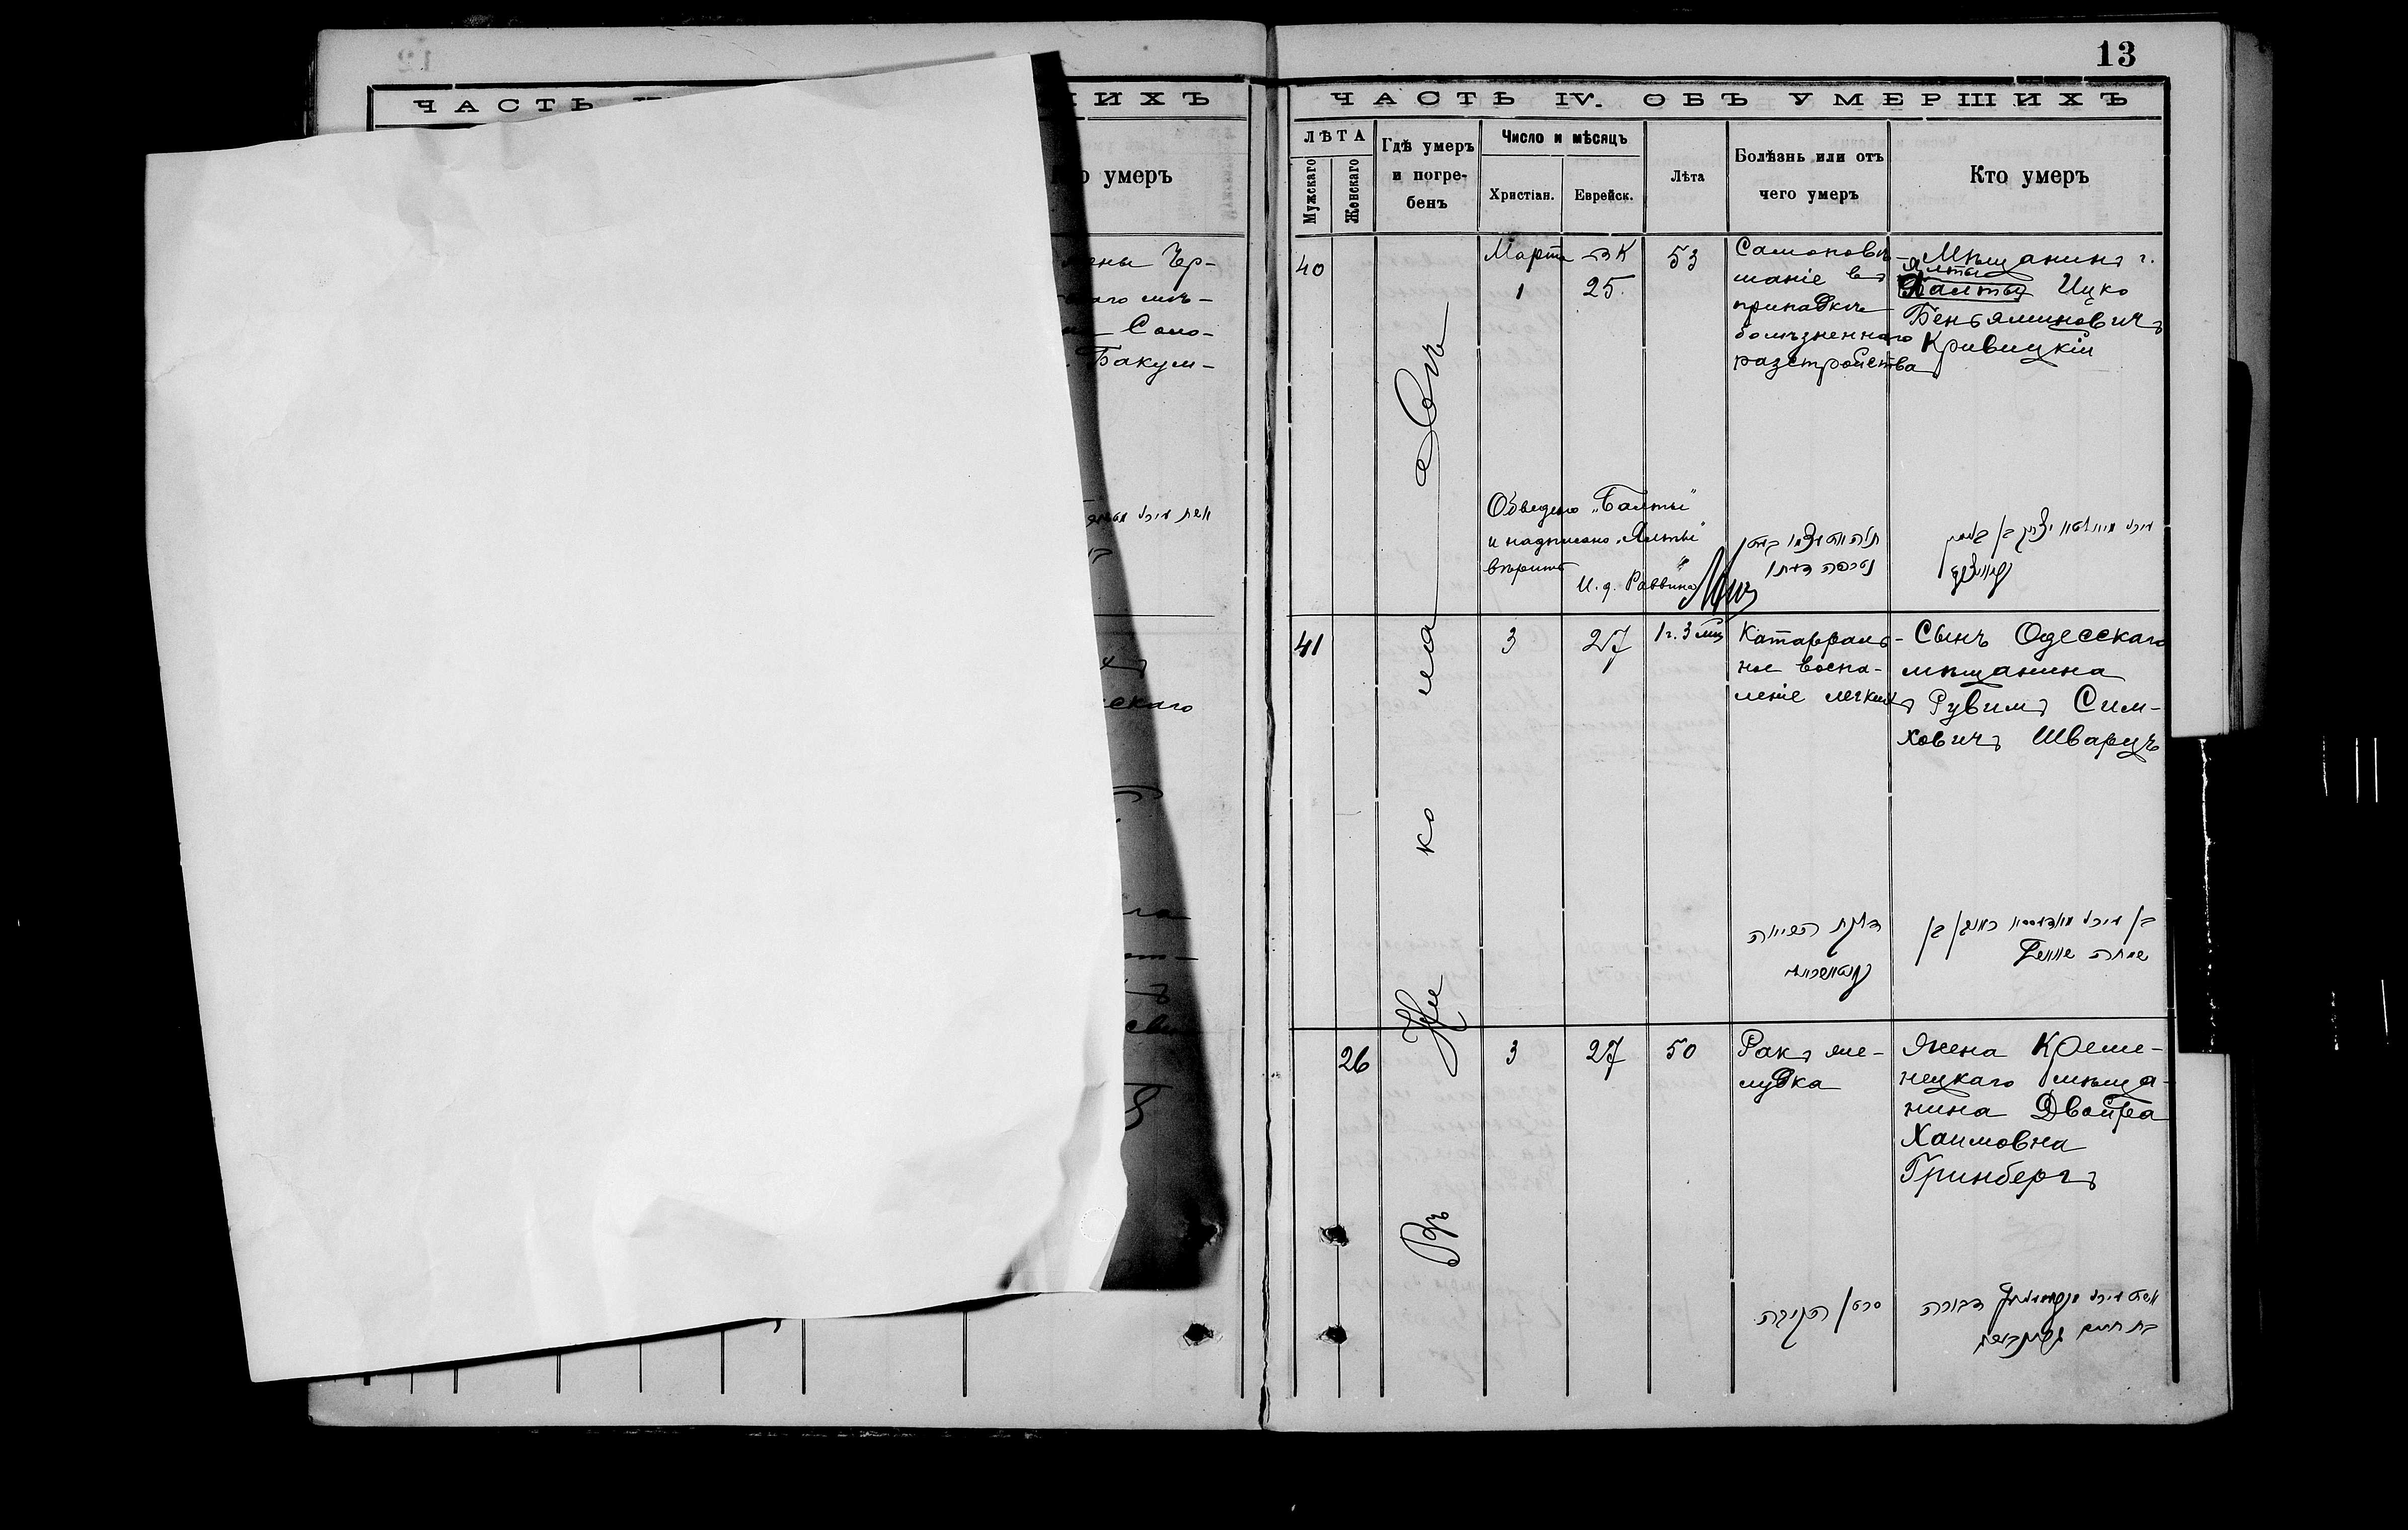 12
ЧАСТЬ
ИХЪ
умеръ
жены Чер-
Соло-
Бакум-
скаго
13
ЧАСТЬ IV. ОБЪ УМЕРШИХЪ
ЛѢТА
Мужскаго
Женскаго
Гдѣ умеръ
и погре-
бенъ
Число и мѣсяцъ
Христіан.
Еврейск.
Лѣта
Болѣзнь или отъ
чего умеръ
Кто умеръ
Въ Николаевѣ
40
Марта
1
25
53
Самоповѣ-
шаніе въ
припадкѣ
болѣзненнаго
разстройства
Мѣщанинъ г.
Ялты
Балты Ицко
Беньяминовичъ
Кривицкій
Обведено „Балты"
и надписано „Ялты"
вѣрить
И. д. Раввина
תלה את עצמו באסון
טרפה דעתו
41
3
27
1 г. 3 мц
Катарраль-
ное воспа-
леніе легкихъ
Сынъ Одесскаго
мѣщанина
Рувимъ Сим-
ховичъ Шварцъ
דלקת הריאה
שמחה
26
3
27
50
Ракъ же-
лудка
Жена Креме-
нецкаго мѣща-
нина Двойра
Хаимовна
Гринбергъ
סרטן הקיבה
דבורה
בת חיים